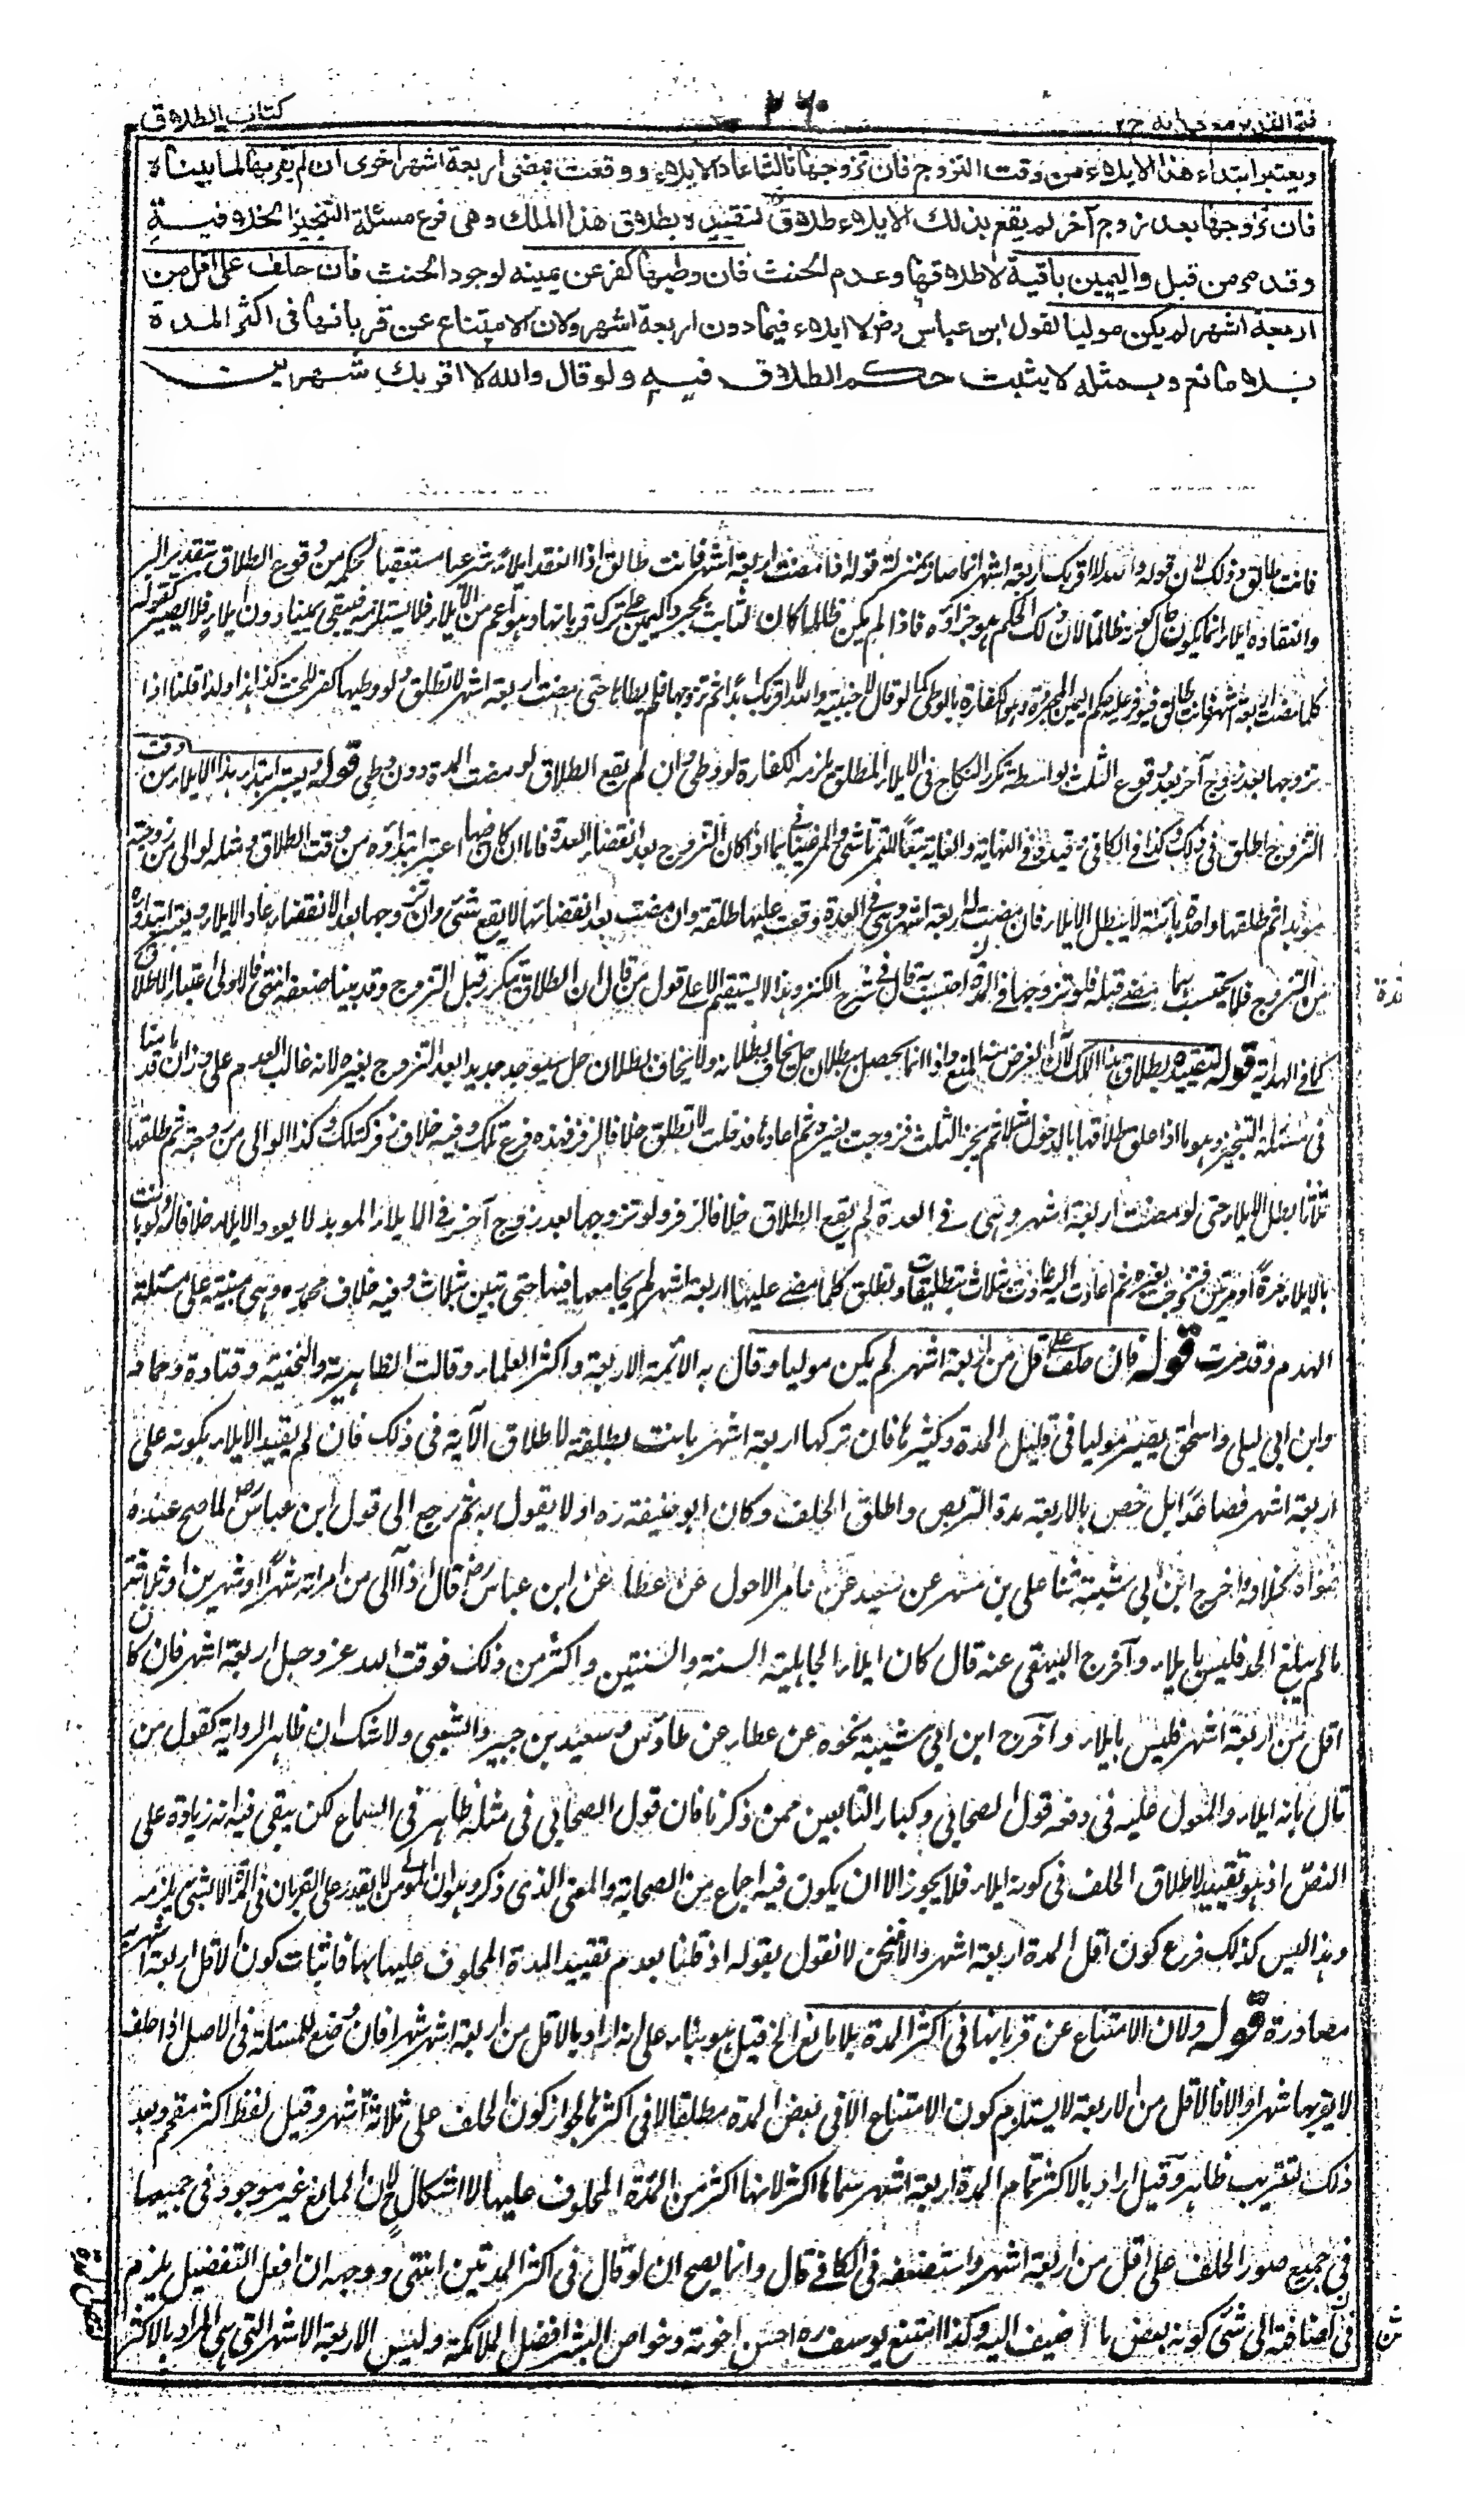 فتح القدير مع هدايه ج٢
٢٦٠
كتاب الطلاق
ويعتبر ابتداء هذا الايلاء من وقت التزوج فان تزوجها ثالثا عاد الايلاء ووقعت بمضى اربعة اشهر اخرى ان لم يقربها لما بيناه
فان تزوجها بعد زوج آخر لم يقع بذلك الايلاء طلاق لتقييده بطلاق هذا الملك وهى فرع مسئلة التنجيز الخلافية
وقد مر من قبل واليمين باقية لاطلاقها وعدم الحنث فان وطيها كفر عن يمينه لوجود الحنث فان حلف على اقل من
اربعة اشهر لم يكن موليا لقول ابن عباس رض لا ايلاء فيما دون اربعة اشهر ولان الامتناع عن قربانها فى اكثر المدة
بلا مانع وبمثله لا يثبت حكم الطلاق فيه ولو قال والله لا اقربك شهرين
فانت طالق وذلك لان قوله والله لا اقربك اربعة اشهر انما صار بمنزلة قوله اذا مضت اربعة اشهر فانت طالق اذا انعقد ايلاء شرعيا مستعقبا لحكمه من وقوع الطلاق بتقدير البر
وانعقاده ايلاء انما يكون حال كونه ظالما لان ذلك الحكم هو جزاؤه فاذا لم يكن ظالما كان الثابت مجرد اليمين على ترك قربانها وهو اعم من الايلاء فلا يستلزمه فيبقى يمينا دون ايلاء فلا يصير كقوله
كلما مضت اربعة اشهر فانت طالق فيتوفر عليه حكم اليمين المجردة وهو الكفارة بالوطى كما لو قال لاجنبية والله لا اقربك ابدا ثم تزوجها فلم يطأها حتى مضت اربعة اشهر لا تطلق ولو وطيها كفر للحنث كذا هذا ولذا قلنا اذا
تزوجها بعد زوج آخر بعد وقوع الثلث بواسطة تكرر النكاح فى الايلاء المطلق يلزمه الكفارة لو وطى وان لم يقع الطلاق لو مضت المدة دون وطى قوله ويعتبر ابتداء هذا الايلاء من وقت
التزوج اطلق فى ذلك وكذا فى الكافى وقيده فى النهاية والغاية تبعا للتمرتاشى والمرغينانى بما اذا كان التزوج بعد انقضاء العدة فاما ان كان فيها اعتبر ابتداؤه من وقت الطلاق ومثله لو آلى من زوجته
مؤبدا ثم طلقها واحدة بائنة لا يبطل الايلاء فان مضت اربعة اشهر وهى فى العدة وقعت عليها طلقة وان مضت بعد انقضائها لا يقع شئ وان تزوجها بعد الانقضاء عاد الايلاء ويعتبر ابتداؤه
من التزوج فلا يحتسب بما مضى قبله فلو تزوجها فى العدة احتسب به قال فى شرح الكنز وهذا لا يستقيم الا على قول من قال ان الطلاق يتكرر قبل التزوج وقد بينا ضعفه انتهى فالاولى اعتبار الاطلاق
كما فى الهداية قوله لتقييده بطلاق هذا الملك لان الغرض منه المنع وذا انما يحصل ببطلان حل يخاف بطلانه ولا يخاف بطلان حل سيوجد جديدا بعد التزوج بغيره لانه غالب العدم على وزان ما بينا قد
فى مسئلة التنجيز وهو ما اذا علق طلاقها بالدخول مثلا ثم نجز الثلث فتزوجت بغيره ثم اعادها فدخلت لا تطلق خلافا لزفر فهذه فرع تلك وفيه خلاف زفر كتلك وكذا لو آلى من زوجته ثم طلقها
ثلاثا بطل الايلاء حتى لو مضت اربعة اشهر وهى فى العدة لم يقع الطلاق خلافا لزفر ولو تزوجها بعد زوج آخر فى الايلاء المؤبد لا يعود الايلاء خلافا له ولو بانت
بالايلاء مرة او مرتين فتزوجت بغيره ثم عادت اليه عادت بثلاث تطليقات وتطلق كلما مضى عليها اربعة اشهر لم يجامعها فيها حتى تبين بثلاث وفيه خلاف محمد ره وهى مبنية على مسئلة
الهدم وقد مرت قوله فان حلف على اقل من اربعة اشهر لم يكن موليا وقال به الائمة الاربعة واكثر العلماء وقالت الظاهرية والنخعية وقتادة وحماد
وابن ابى ليلى واسحق يصير موليا فى قليل المدة وكثيرها فان تركها اربعة اشهر بانت بطلقة لاطلاق الآية فى ذلك فان لم يقيد الايلاء بكونه على
اربعة اشهر فصاعدا بل خص بالاربعة مدة التربص واطلق الحلف وكان ابو حنيفة ره اولا يقول به ثم رجع الى قول ابن عباس رض لما صح عنده
فتواه بخلافه واخرج ابن ابى شيبة ثنا على بن مسهر عن سعيد عن عامر الاحول عن عطاء عن ابن عباس رض قال اذا آلى من امراته شهرا او شهرين او ثلاثة
ما لم يبلغ الحد فليس بايلاء واخرج البيهقى عنه قال كان ايلاء الجاهلية السنة والسنتين واكثر من ذلك فوقت الله عز وجل اربعة اشهر فان كان
اقل من اربعة اشهر فليس بايلاء واخرج ابن ابى شيبة نحوه عن عطاء وعن طاوس وسعيد بن جبير والشعبى ولا شك ان ظاهر الرواية كقول من
قال بانه ايلاء والمعول عليه فى دفعه قول الصحابى وكبار التابعين ممن ذكرنا فان قول الصحابى فى مثله ظاهر فى السماع لكن يبقى فيه انه زيادة على
النص اذ هو تقييد لاطلاق الحلف فى كونه ايلاء فلا يجوز الا ان يكون فيه اجماع من الصحابة والمعنى الذى ذكر وهو ان المولى من لا يقدر على القربان فى المدة الا بشئ يلزمه
وهذا ليس كذلك فرع كون اقل المدة اربعة اشهر والا فنحن لا نقول بقوله اذ قلنا بعدم تقييد المدة المحلوف عليها بها فاثبات كون الاقل اربعة اشهر به
مصادرة قوله ولان الامتناع عن قربانها فى اكثر المدة بلا مانع الخ قيل هو بناء على انه اراد بالاقل من اربعة اشهر شهرا فان وضع المسئلة فى الاصل اذا حلف
لا يقربها شهرا والا فالاقل من الاربعة لا يستلزم كون الامتناع الا فى بعض المدة مطلقا لا فى اكثرها لجواز كون الحلف على ثلاثة اشهر وقيل لفظ اكثر مقحم وبعد
ذلك التقريب ظاهر وقيل اراد بالاكثر تمام المدة اربعة اشهر سماها اكثر لانها اكثر من المدة المحلوف عليها لا اشكال ح لان المانع غير موجود فى جميعها
فى جميع صور الحلف على اقل من اربعة اشهر واستضعفه فى الكافى قال وانما يصح ان لو قال فى اكثر المدتين انتهى ووجهه ان افعل التفضيل يلزم
فى اضافته الى شئ كونه بعض ما اضيف اليه وكذا امتنع يوسف ره احسن اخوته وخواص البشر افضل الملائكة وليس الاربعة الاشهر التى هى المراد بالاكثر